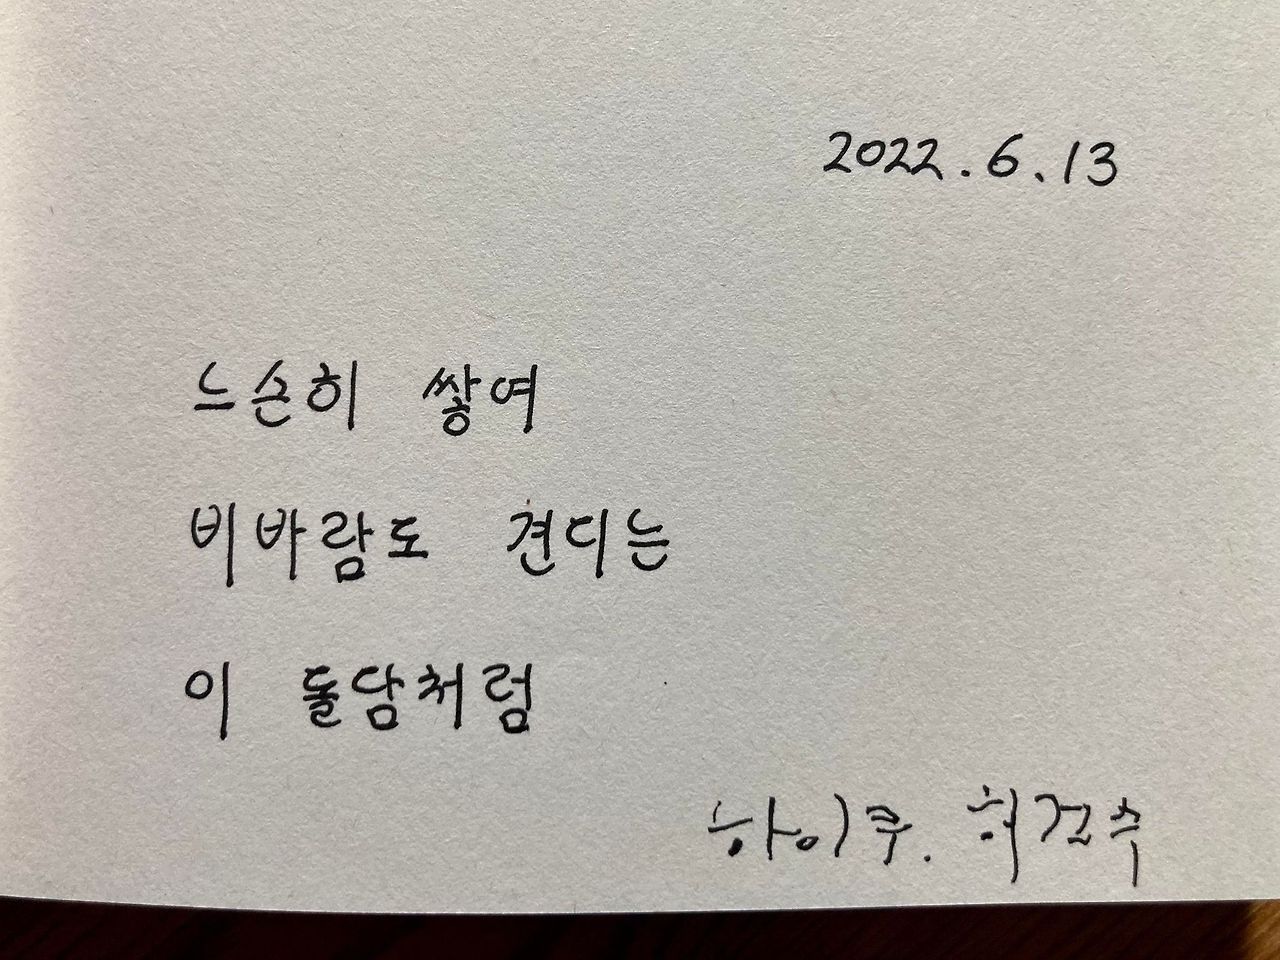 2022.6.13
느슨히 쌓여
비바람도 견디는
이 돌담처럼
하이쿠. 허건수